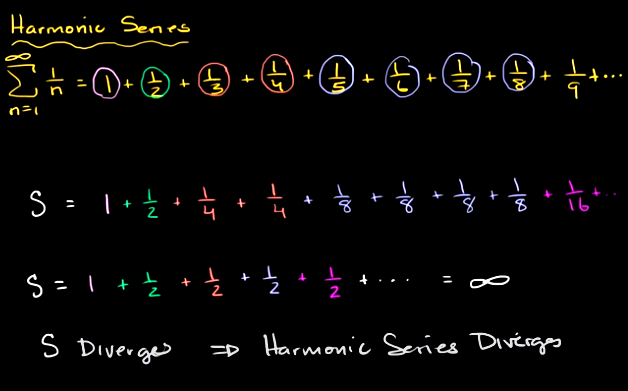 Harmonic Series
∞
∑ 1/n = 1 + 1/2 + 1/3 + 1/4 + 1/5 + 1/6 + 1/7 + 1/8 + 1/9 + ...
n=1
S = 1 + 1/2 + 1/4 + 1/4 + 1/8 + 1/8 + 1/8 + 1/8 + 1/16 + ...
S = 1 + 1/2 + 1/2 + 1/2 + 1/2 + ... = ∞
S Diverges ⇒ Harmonic Series Diverges